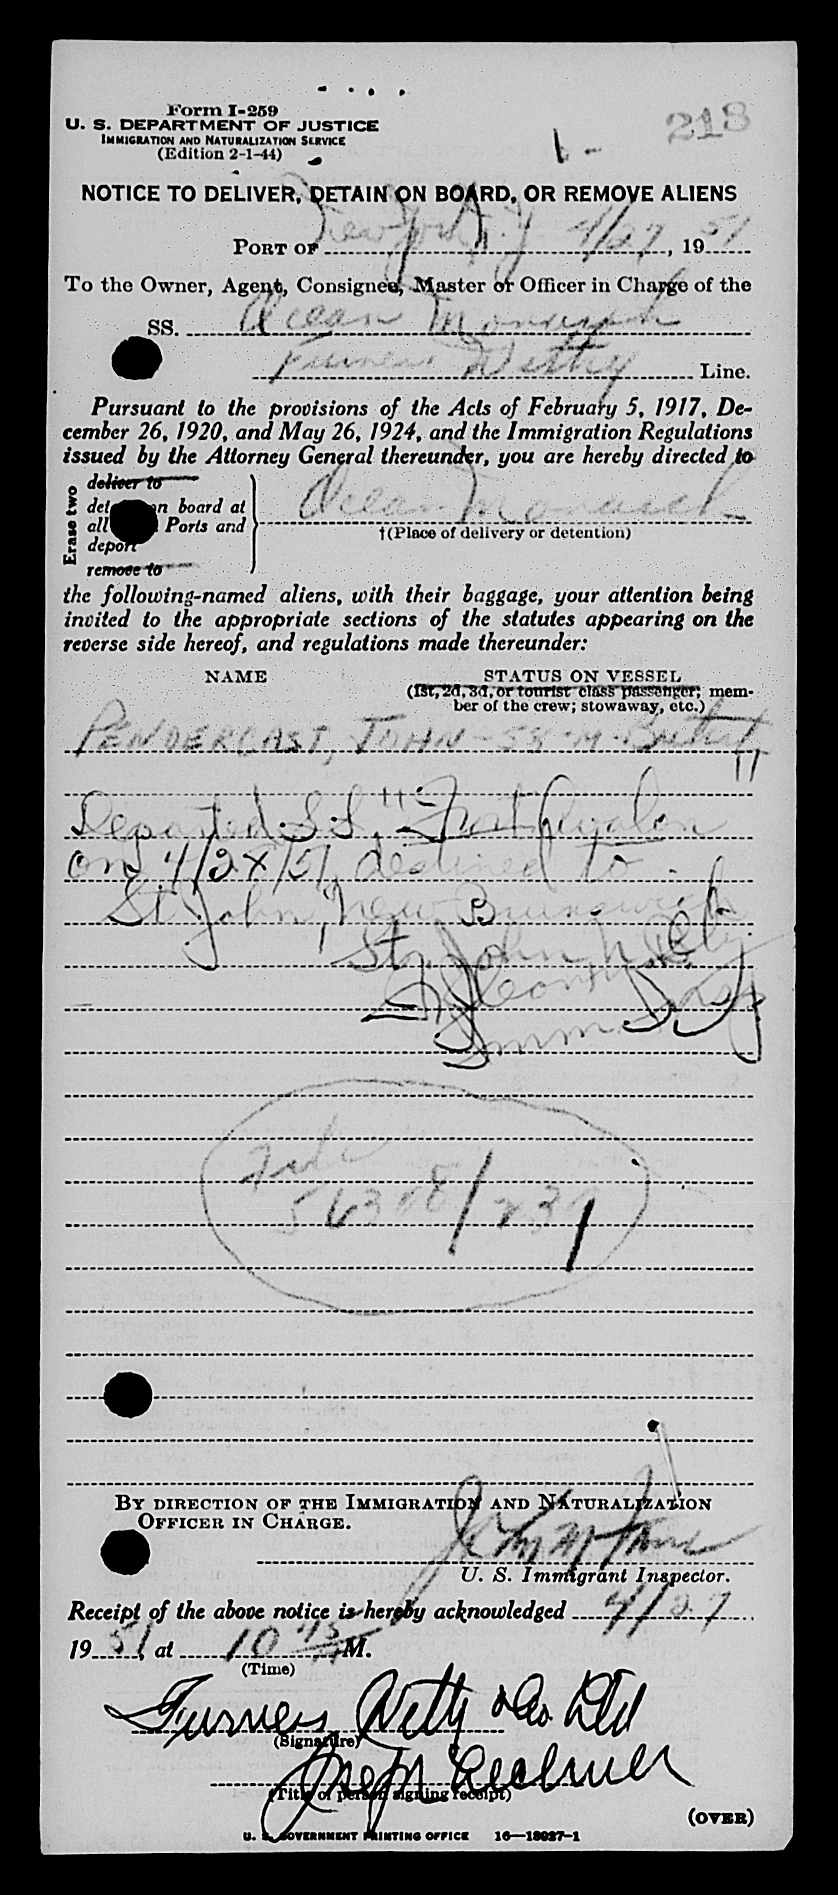 Form I-259
218
U. S. DEPARTMENT OF JUSTICE
IMMIGRATION AND NATURALIZATION SERVICE
(Edition 2-1-44)
NOTICE TO DELIVER, DETAIN ON BOARD, OR REMOVE ALIENS
PORT OF New York, N.Y. 4/27, 1951
To the Owner, Agent, Consignee, Master or Officer in Charge of the
SS. Ocean Monarch
Furness Withy Line.
Pursuant to the provisions of the Acts of February 5, 1917, De-
cember 26, 1920, and May 26, 1924, and the Immigration Regulations
issued by the Attorney General thereunder, you are hereby directed to
Erase two
deliver to
on board at
all Ports and
deport
remove to
Ocean Monarch
†(Place of delivery or detention)
the following-named aliens, with their baggage, your attention being
invited to the appropriate sections of the statutes appearing on the
reverse side hereof, and regulations made thereunder:
NAME STATUS ON VESSEL
(1st, 2d, 3d, or tourist class passenger; mem-
ber of the crew; stowaway, etc.)
PENDERGAST, JOHN - 58 - M - British
Departed S.S. "Fort Avalon"
on 4/28/51, destined to
St. John, New Brunswick
St. John
File
/237
BY DIRECTION OF THE IMMIGRATION AND NATURALIZATION
OFFICER IN CHARGE.
U. S. Immigrant Inspector.
Receipt of the above notice is hereby acknowledged 4/27
1951, at 10 45 M.
(Time)
Furness Withy & Co Ltd
(Signature)
Joseph
(Title of person signing receipt)
(OVER)
U. S. GOVERNMENT PRINTING OFFICE 16—18027-1